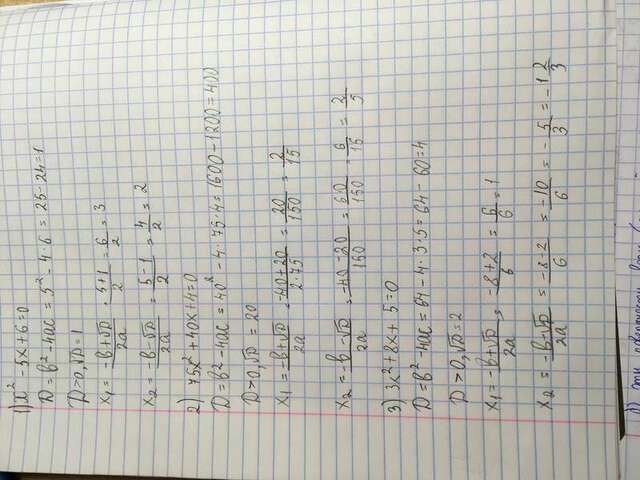 1) x² - 5x + 6 = 0
D = b² - 4ac = 5² - 4 · 6 = 25 - 24 = 1
D > 0, √D = 1
x₁ = (-b + √D)/2a = (5 + 1)/2 = 6/2 = 3
x₂ = (-b - √D)/2a = (5 - 1)/2 = 4/2 = 2
2) 75x² + 40x + 4 = 0
D = b² - 4ac = 40² - 4 · 75 · 4 = 1600 - 1200 = 400
D > 0, √D = 20
x₁ = (-b + √D)/2a = (-40 + 20)/(2 · 75) = 20/150 = 2/15
x₂ = (-b - √D)/2a = (-40 - 20)/150 = 60/150 = 6/15 = 2/5
3) 3x² + 8x + 5 = 0
D = b² - 4ac = 64 - 4 · 3 · 5 = 64 - 60 = 4
D > 0, √D = 2
x₁ = (-b + √D)/2a = (-8 + 2)/6 = 6/6 = 1
x₂ = (-b - √D)/2a = (-8 - 2)/6 = -10/6 = -5/3 = -1 2/3